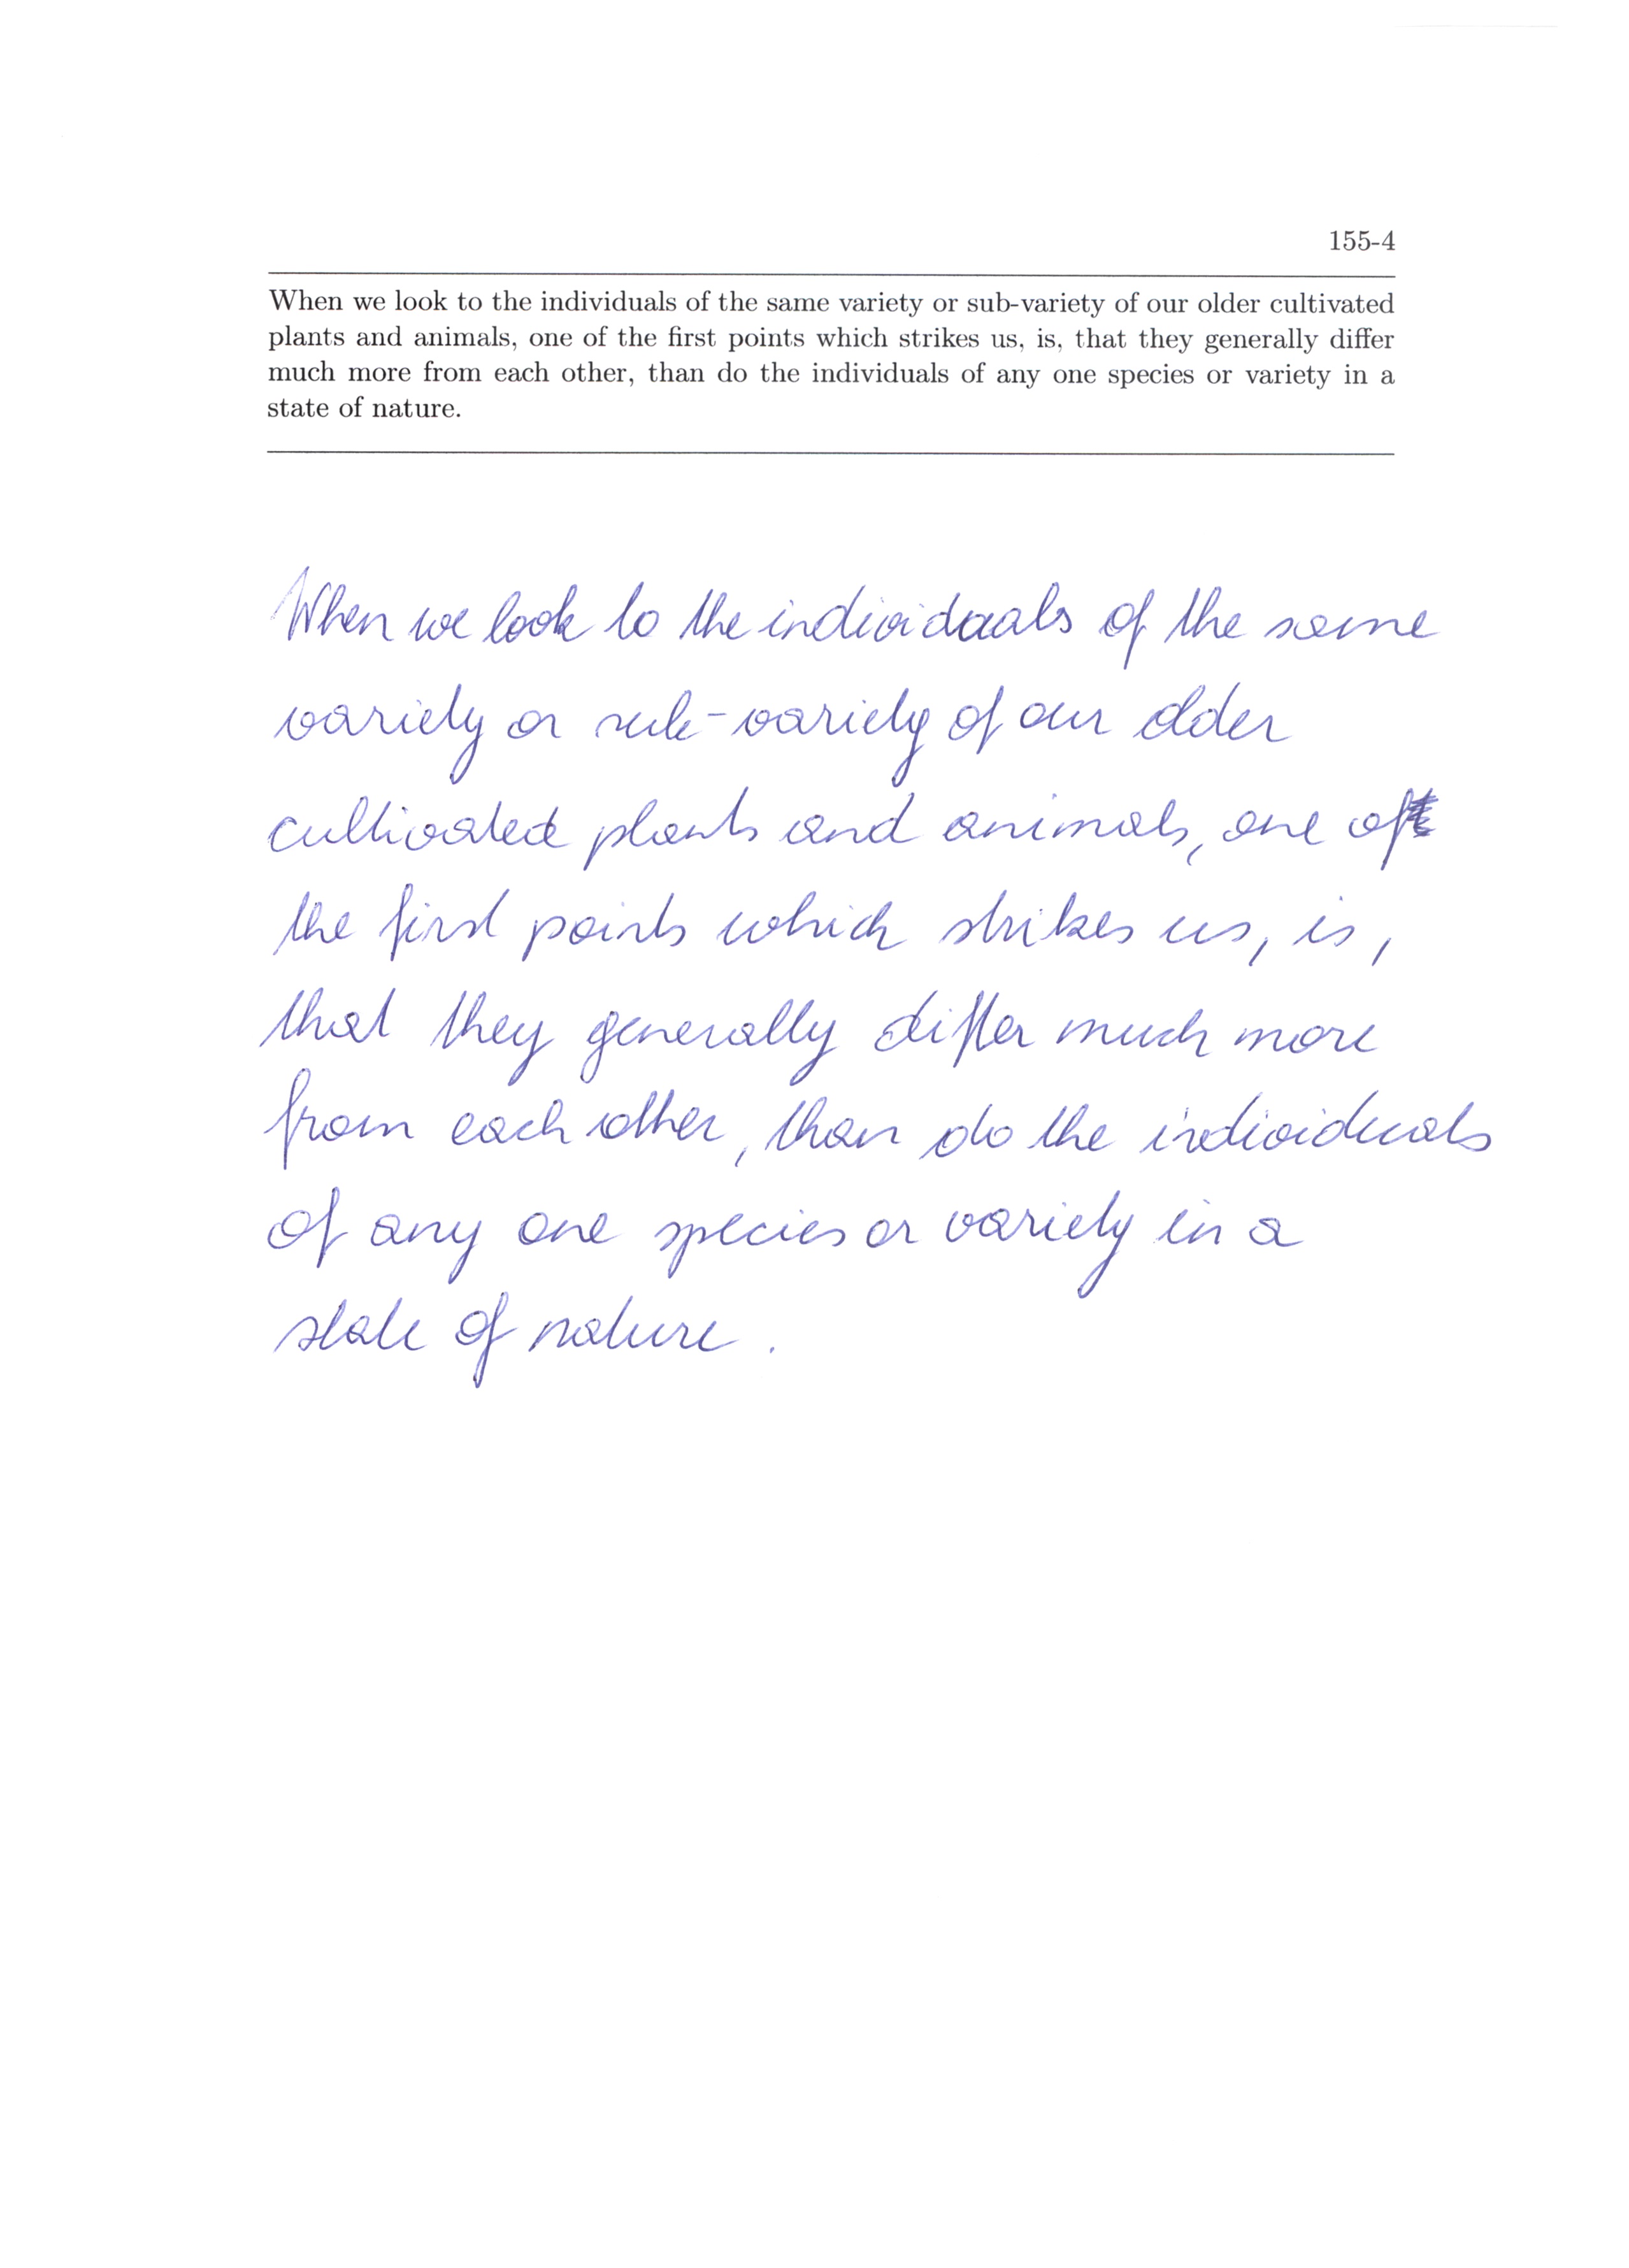 155-4
When we look to the individuals of the same variety or sub-variety of our older cultivated
plants and animals, one of the first points which strikes us, is, that they generally differ
much more from each other, than do the individuals of any one species or variety in a
state of nature.
When we look to the individuals of the same
variety or sub-variety of our older
cultivated plants and animals, one of
the first points which strikes us, is,
that they generally differ much more
from each other, than do the individuals
of any one species or variety in a
state of nature.